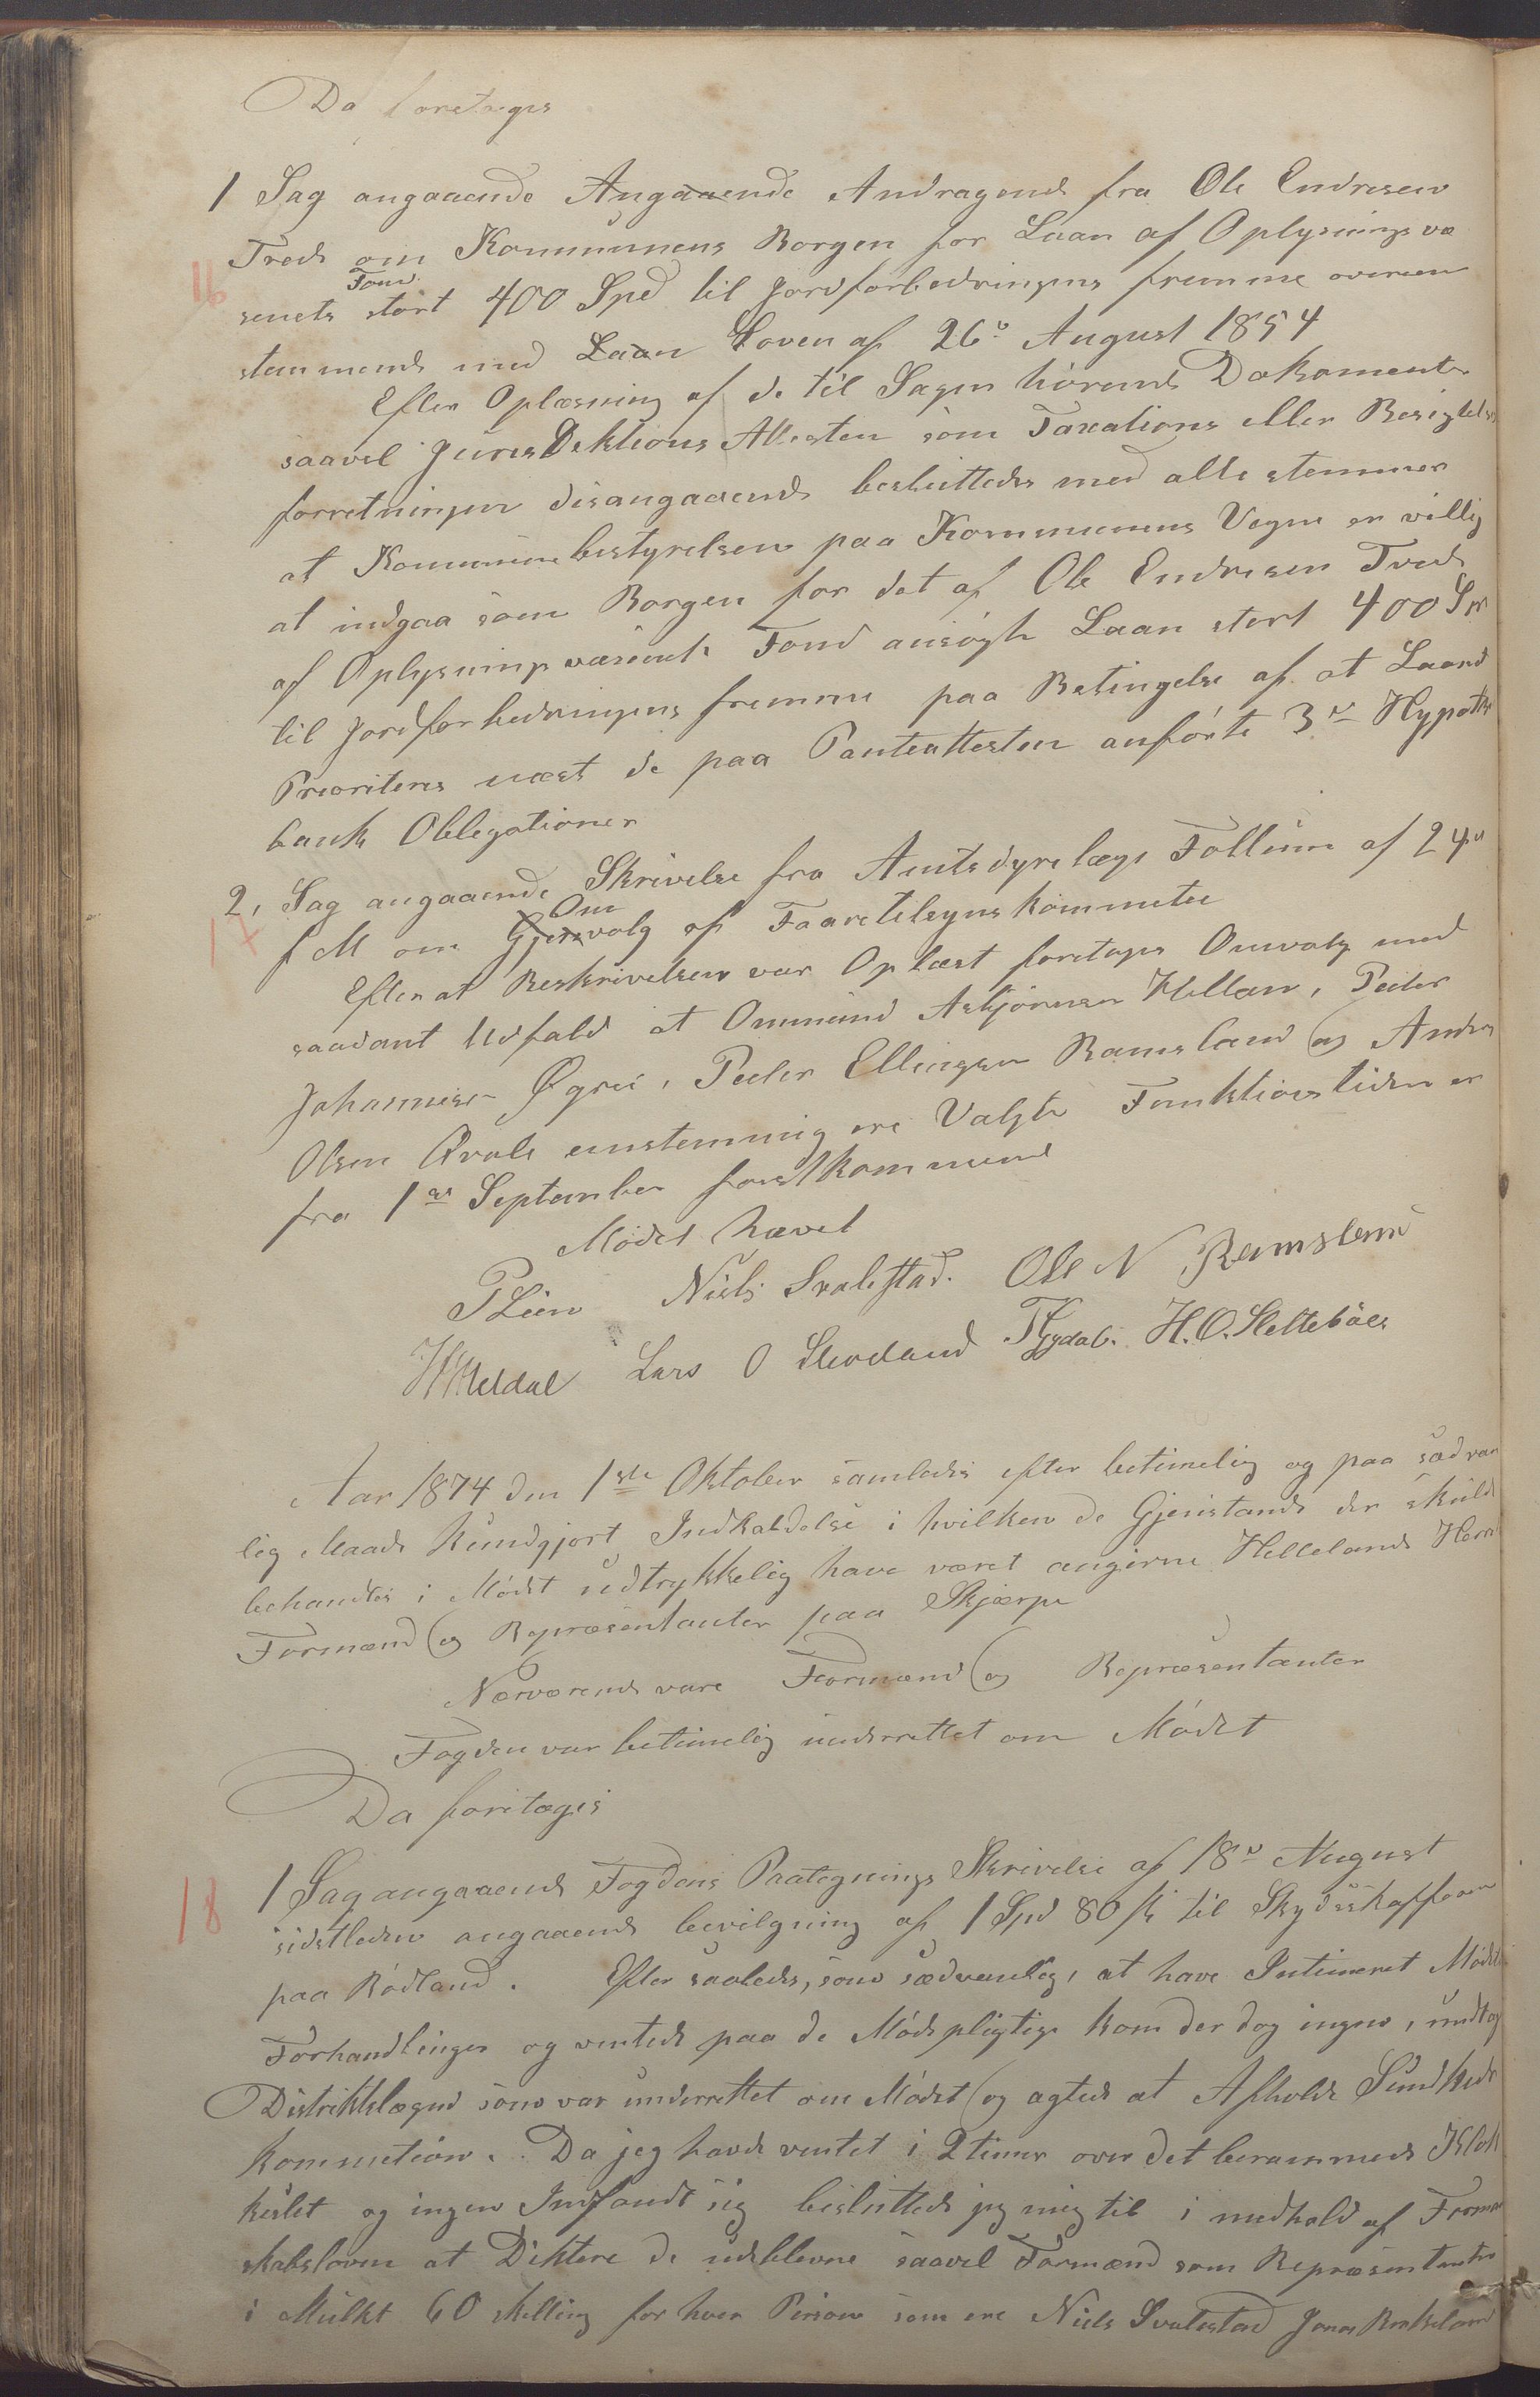 Da foretages
1 Sag angaaende Angaaende Andragende fra Ole Endresen
Tveds om Kommunens Borgen for Laan af Oplysningsvæ
16
Fond
senets stort 400 Spd til Jordforbedringens fremme overeen
stemmende med Laan Loven af 26de August 1854
Efter Oplæsning af de til Sagen hörende Dokomenter
saavel JurisDiktions Attesten som Taxations eller Besigtelses
forretningen desangaaende besluttedes med alle stemmer
at Kommunebestyrelsen paa Kommunens Vegne er villig
at indgaa som Borgen for det af Ole Endresen Tveds
af Oplysningsvæsenets Fond ansögte Laan stort 400 Spd
til Jordforbedringens fremme paa Betingelse af at Laanet
Prioriteres næst de paa Panteattesten anförte 3de Hypothe
bank Obligationer
2, Sag angaaende Skrivelse fra Amtsdyrelæge Follum af 24de
17
Om
f M om Gjenvalg af Faaretilsynskommitee
Efter at Beskrivelsen var Oplæst foretoges Omvalg med
saadant Udfald at Ommund Asbjörnsen Hellan, Peder
Johannesen Øgrei, Peder Ellingsen Ramsland og Andreas
Olsen Qvale enstemmig ere Valgte Funktionstiden er
fra 1ste September førstkommende
Mödet hævet
P Lien Niels Svalestad. Ole N Ramsland
Lars O Slevoland T Gydal. H.O. Sletteböe
Aar 1874 den 1ste Oktober samledes efter betimelig og paa sædvan
lig Maade Kundgjort Indkaldelse i hvilken de Gjenstande der skulde
behandles i Mödet udtrykkelig have været angivne Hellelands Herreds
Formænd og Repræsentanter paa Skjærpe
Nærværende vare Formænd og Repræsentanter
Fogden var betimelig underrettet om Mödet
Da foretoges
1 Sag angaaende Fogdens Paategnings Skrivelse af 18de August
18
sidstleden angaaende bevilgning af 1 Spd 80 sk til Skydsskafferen
paa Rödland. Efter saaledes, som sædvanlig, at have Intimeret Mödets
Forhandlinger og ventede paa de Mödepligtige kom der dog ingen, undtag
Distriktslægen som var underrettet om Mödet og agtede at Afholde Sundheds
kommetion. Da jeg havde ventet i 2 timer over det berammede Klok
keslet og ingen Indfandt sig besluttede jeg mig til i medhold af Formand
skabsloven at Diktere de udeblevne saavel Formænd som Repræsentanter
i Mulkt 60 skilling for hver Person som ere Niels Svalestad Jonas